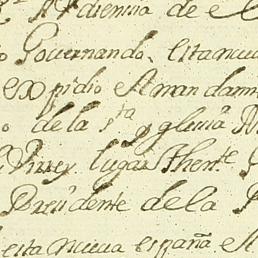 Audiencia de
Governando. esta nueva
expidio el mandam
o de la Sta yglecia
Virrey lugar thente
Precidente de la
esta nueva españa